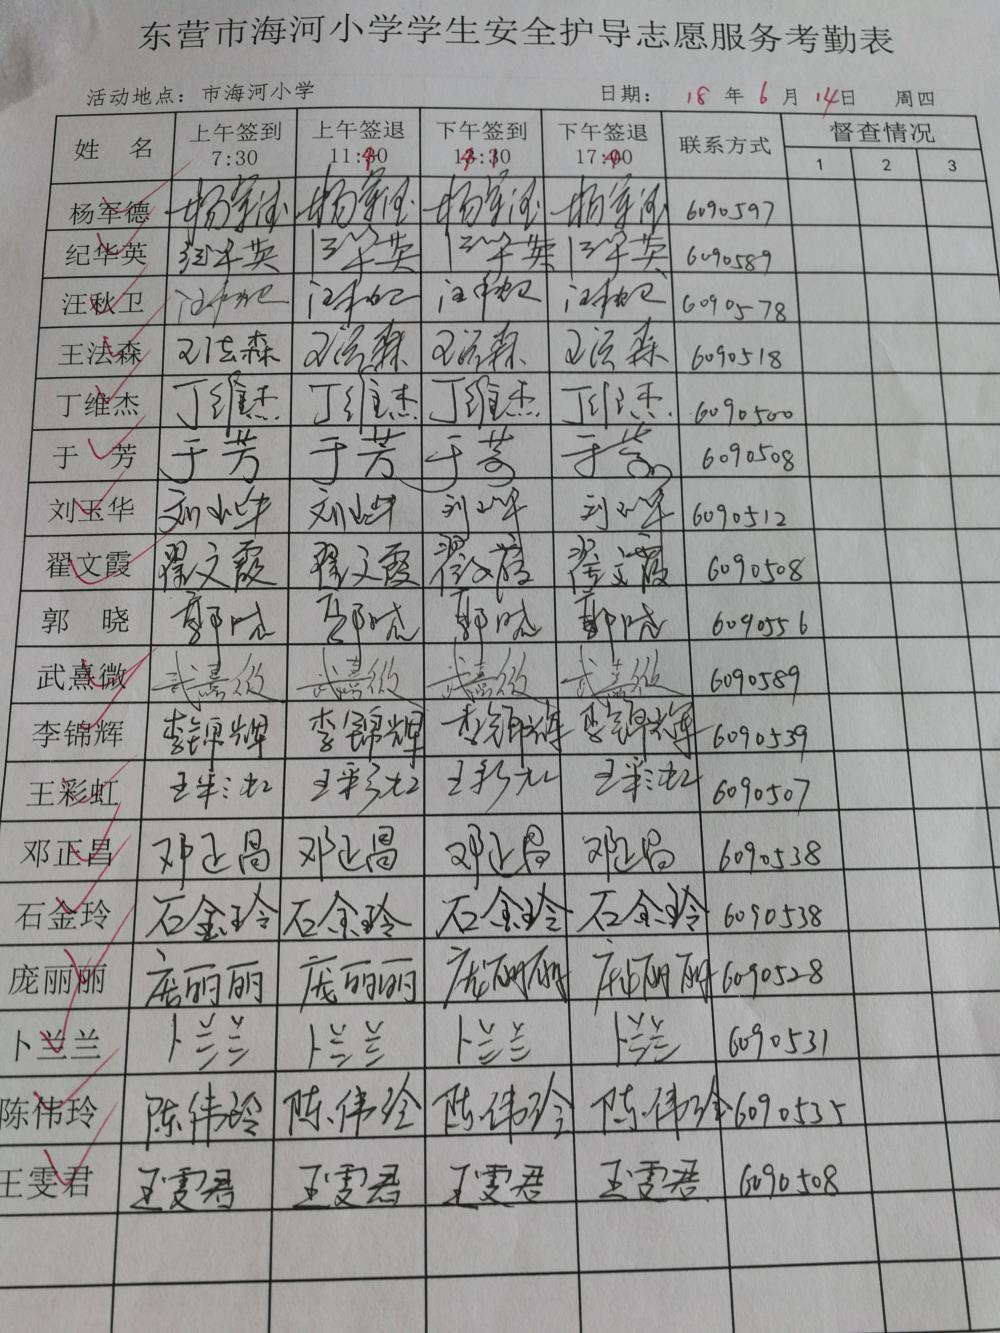 东营市海河小学学生安全护导志愿服务考勤表
活动地点：市海河小学 日期： 18 年 6 月 14日 周四
姓 名 上午签到 上午签退 下午签到 下午签退 联系方式 督查情况
7:30 17:00 1 2 3
杨军德 杨军德 杨军德 杨军德 杨军德 6090597
纪华英 纪华英 纪华英 纪华英 纪华英 6090589
汪秋卫 汪秋卫 汪秋卫 汪秋卫 汪秋卫 6090578
王法森 王法森 王法森 王法森 王法森 6090518
丁维杰 丁维杰 丁维杰 丁维杰 丁维杰 6090500
于 芳 于芳 于芳 于芳 于芳 6090508
刘玉华 刘玉华 刘玉华 刘玉华 刘玉华 6090512
翟文霞 翟文霞 翟文霞 翟文霞 翟文霞 6090508
郭 晓 郭晓 郭晓 郭晓 郭晓 6090556
武熹微 武熹微 武熹微 武熹微 武熹微 6090589
李锦辉 李锦辉 李锦辉 李锦辉 李锦辉 6090539
王彩虹 王彩虹 王彩虹 王彩虹 王彩虹 6090507
邓正昌 邓正昌 邓正昌 邓正昌 邓正昌 6090538
石金玲 石金玲 石金玲 石金玲 石金玲 6090538
庞丽丽 庞丽丽 庞丽丽 庞丽丽 庞丽丽 6090528
卜兰兰 卜兰兰 卜兰兰 卜兰兰 卜兰兰 6090531
陈伟玲 陈伟玲 陈伟玲 陈伟玲 陈伟玲 6090535
王雯君 王雯君 王雯君 王雯君 王雯君 6090508